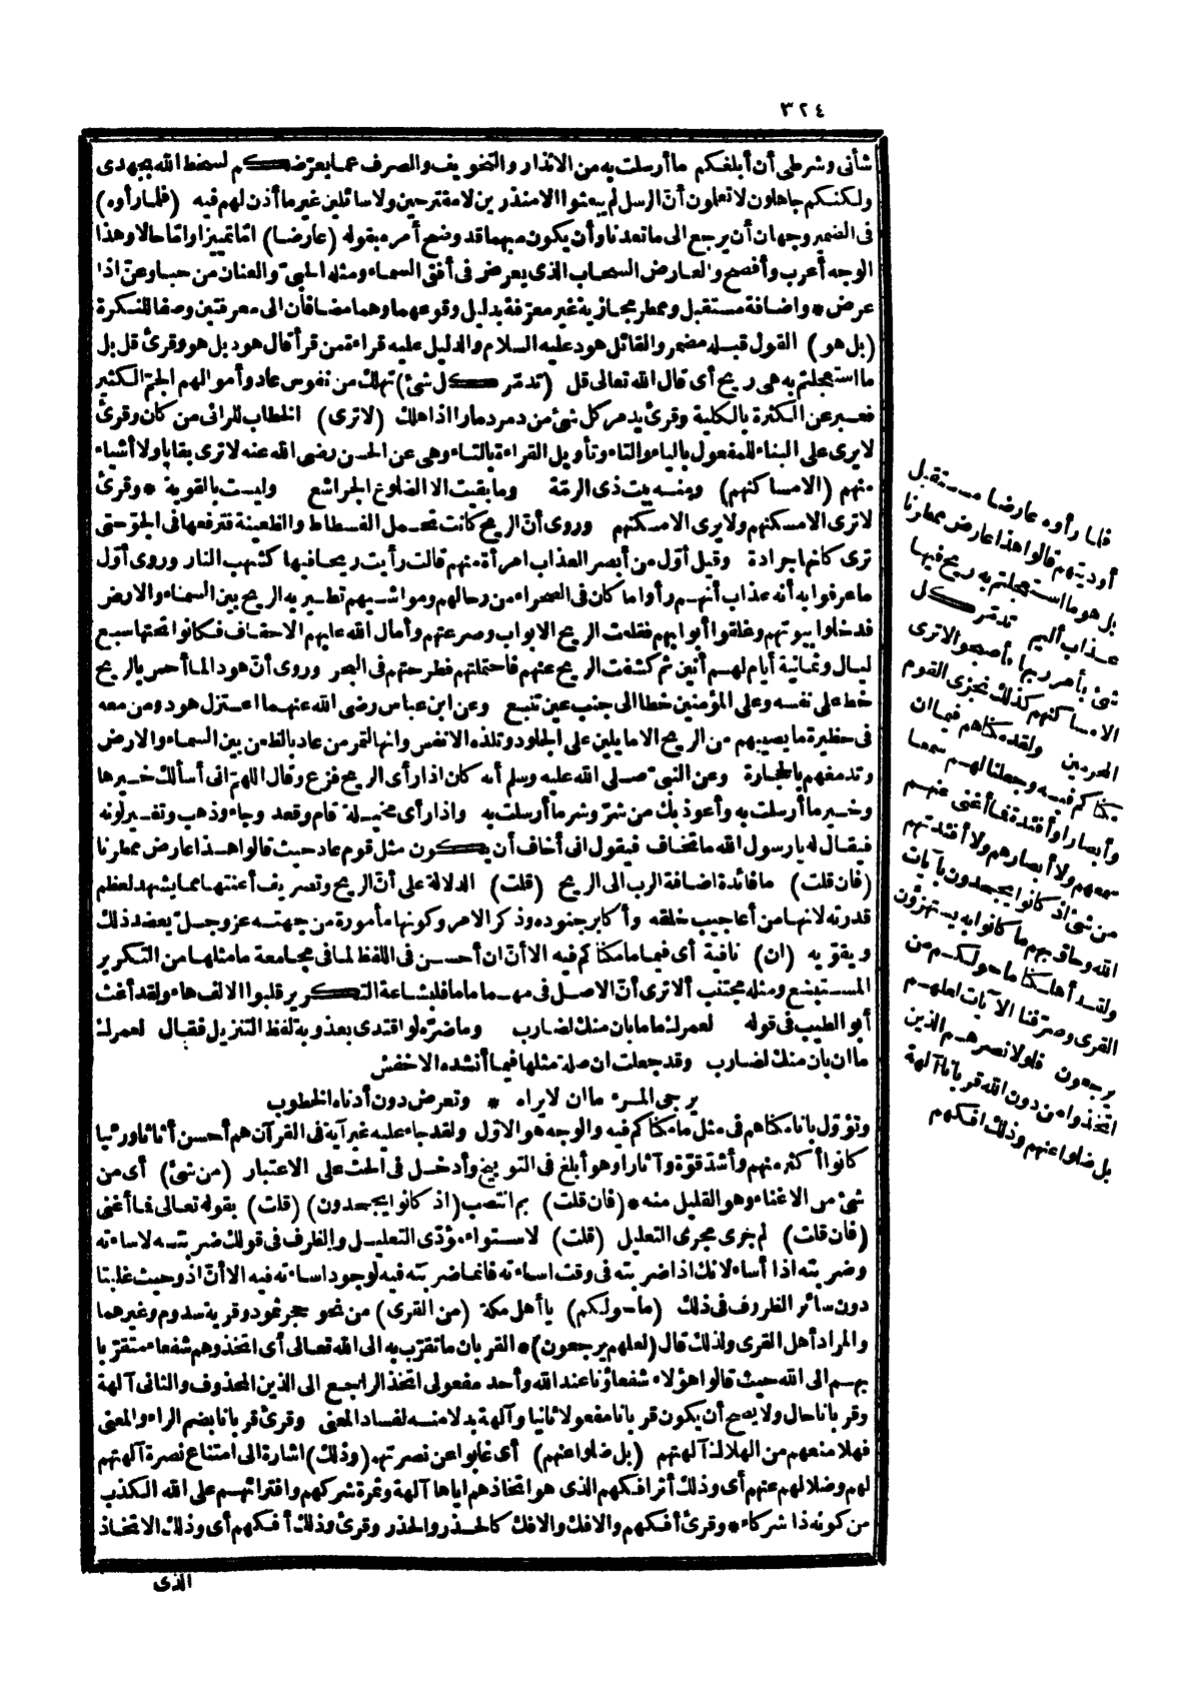 ٣٢٤
شأنى وشرطى أن أبلغكم ما أرسلت به من الانذار والتخويف والصرف عما يعرّضكم لسخط الله بجهدى
ولكنكم جاهلون لا تعلون أنّ الرسل لم يبعثوا الا منذرين لا مقترحين ولا سائلين غير ما أذن لهم فيه (فلما رأوه)
فى الضمير وجهان أن يرجع الى ما تعدنا وأن يكون مبهما قد وضح أمره بقوله (عارضا) امّا تمييزا وامّا حالا وهذا
الوجه أعرب وأفصح والعارض السحاب الذى يعرض فى أفق السماء ومثله الحبىّ والعنان من حبا وعنّ اذا
عرض * واضافة مستقبل وممطر مجازية غير معرّفة بدليل وقوعهما وهما مضافان الى معرفتين وصفا للنكرة
(بل هو) القول قبله مضمر والقائل هود عليه السلام والدليل عليه قراءة من قرأ قال هود بل هو وقرئ قل بل
ما استعجلتم به هى ريح أى قال الله تعالى قل (تدمّر كل شئ) تهلك من نفوس عاد وأموالهم الجمّ الكثير
فعبر عن الكثرة بالكلية وقرئ يدمر كل شئ من دمر دمارا اذا هلك (لا ترى) الخطاب للرائى من كان وقرئ
لا يرى على البناء للمفعول بالياء والتاء وتأويل القراءة بالتاء وهى عن الحسن رضى الله عنه لا ترى بقايا ولا أشياء
منهم (الا مساكنهم) ومنه بيت ذى الرمّة وما بقيت الا الضلوع الجراشع وليست بالقوية * وقرئ
لا ترى الا مسكنهم ولا يرى الا مسكنهم وروى أنّ الريح كانت تحمل الفسطاط والظعينة فترفعها فى الجوّ حتى
ترى كأنها جرادة وقيل أوّل من أبصر العذاب امرأة منهم قالت رأيت ريحا فيها كشهب النار وروى أوّل
ما عرفوا به أنه عذاب أنهم رأوا ما كان فى الصحراء من رحالهم ومواشيهم تطير به الريح بين السماء والارض
فدخلوا بيوتهم وغلقوا أبوابهم فقلعت الريح الابواب وصرعتهم وأمال الله عليهم الاحقاف فكانوا تحتها سبع
ليال وثمانية أيام لهم أنين ثم كشفت الريح عنهم فاحتملتهم فطرحتهم فى البحر وروى أنّ هودا لما أحس بالريح
خط على نفسه وعلى المؤمنين خطا الى جنب عين تنبع وعن ابن عباس رضى الله عنهما اعتزل هود ومن معه
فى حظيرة ما يصيبهم من الريح الا ما يلين على الجلود وتلذه الانفس وانها لتمر من عاد بالظعن بين السماء والارض
وتدمغهم بالحجارة وعن النبىّ صلى الله عليه وسلم أنه كان اذا رأى الريح فزع وقال اللهمّ انى أسألك خيرها
وخير ما أرسلت به وأعوذ بك من شرّ وشر ما أرسلت به واذا رأى مخيلة قام وقعد وجاء وذهب وتغير لونه
فيقال له يا رسول الله ما تخاف فيقول انى أخاف أن يكون مثل قوم عاد حيث قالوا هذا عارض ممطرنا
(فان قلت) ما فائدة اضافة الرب الى الريح (قلت) الدلالة على أنّ الريح وتصريف أعنتها مما يشهد لعظم
قدرته لانها من أعاجيب خلقه وأكابر جنوده وذكر الامر وكونها مأمورة من جهته عز وجلّ يعضد ذلك
ويقوّيه (ان) نافية أى فيما ما مكناكم فيه الا أنّ ان أحسن فى اللفظ لما فى مجامعة ما مثلها من التكرير
المستبشع ومثله مجتنب ألا ترى أنّ الاصل فى مهما ماما فلبشاعة التكرير قلبوا الالف هاء ولقد أغث
أبو الطيب فى قوله لعمرك ما ما بان منك لضارب وما ضرّه لو اقتدى بعذوبة لفظ التنزيل فقال لعمرك
ما ان بان منك لضارب وقد جعلت ان صلة مثلها فيما أنشده الاخفش
يرجى المرء ما ان لا يراه * وتعرض دون أدناه الخطوب
وتؤوّل بانا مكناهم فى مثل ما مكناكم فيه والوجه هو الاوّل ولقد جاء عليه غير آية فى القرآن هم أحسن أثاثا ورئيا
كانوا أكثر منهم وأشدّ قوّة وآثارا وهو أبلغ فى التوبيخ وأدخل فى الحث على الاعتبار (من شئ) أى من
شئ من الاغناء وهو القليل منه * (فان قلت) بم انتصب (اذ كانوا يجحدون) (قلت) بقوله تعالى فما أغنى
(فان قلت) لم جرى مجرى التعليل (قلت) لاستواء مؤدّى التعليل والظرف فى قولك ضربته لاساءته
وضربته اذا أساء لانك اذا ضربته فى وقت اساءته فانما ضربته فيه لوجود اساءته فيه الا أنّ اذ وحيث غلبتا
دون سائر الظروف فى ذلك (ما حولكم) يا أهل مكة (من القرى) من نحو حجر ثمود وقرية سدوم وغيرهما
والمراد أهل القرى ولذلك قال (لعلهم يرجعون) * القربان ما تقرّب به الى الله تعالى أى اتخذوهم شفعاء متقرّبا
بهم الى الله حيث قالوا هؤلاء شفعاؤنا عند الله وأحد مفعولى اتخذ الراجع الى الذين المحذوف والثانى آلهة
وقربانا حال ولا يصح أن يكون قربانا مفعولا ثانيا وآلهة بدلا منه لفساد المعنى وقرئ قربانا بضم الراء والمعنى
فهلا منعهم من الهلاك آلهتهم (بل ضلوا عنهم) أى غابوا عن نصرتهم (وذلك) اشارة الى امتناع نصرة آلهتهم
لهم وضلالهم عنهم أى وذلك أثر افكهم الذى هو اتخاذهم اياها آلهة وثمرة شركهم وافترائهم على الله الكذب
من كونه ذا شركاء * وقرئ أفكهم والافك والافك كالحذر والحذر وقرئ وذلك أفكهم أى وذلك الاتخاذ
الذى
فلما رأوه عارضا مستقبل
أوديتهم قالوا هذا عارض ممطرنا
بل هو ما استعجلتم به ريح فيها
عذاب أليم تدمّر كل
شئ بأمر ربها فأصبحوا لا ترى
الا مساكنهم كذلك نجزى القوم
المجرمين ولقد مكناهم فيما ان
مكناكم فيه وجعلنا لهم سمعا
وأبصارا وأفئدة فما أغنى عنهم
سمعهم ولا أبصارهم ولا أفئدتهم
من شئ اذ كانوا يجحدون بآيات
الله وحاق بهم ما كانوا به يستهزؤن
ولقد أهلكنا ما حولكم من
القرى وصرّفنا الآيات لعلهم
يرجعون فلولا نصرهم الذين
اتخذوا من دون الله قربانا آلهة
بل ضلوا عنهم وذلك افكهم